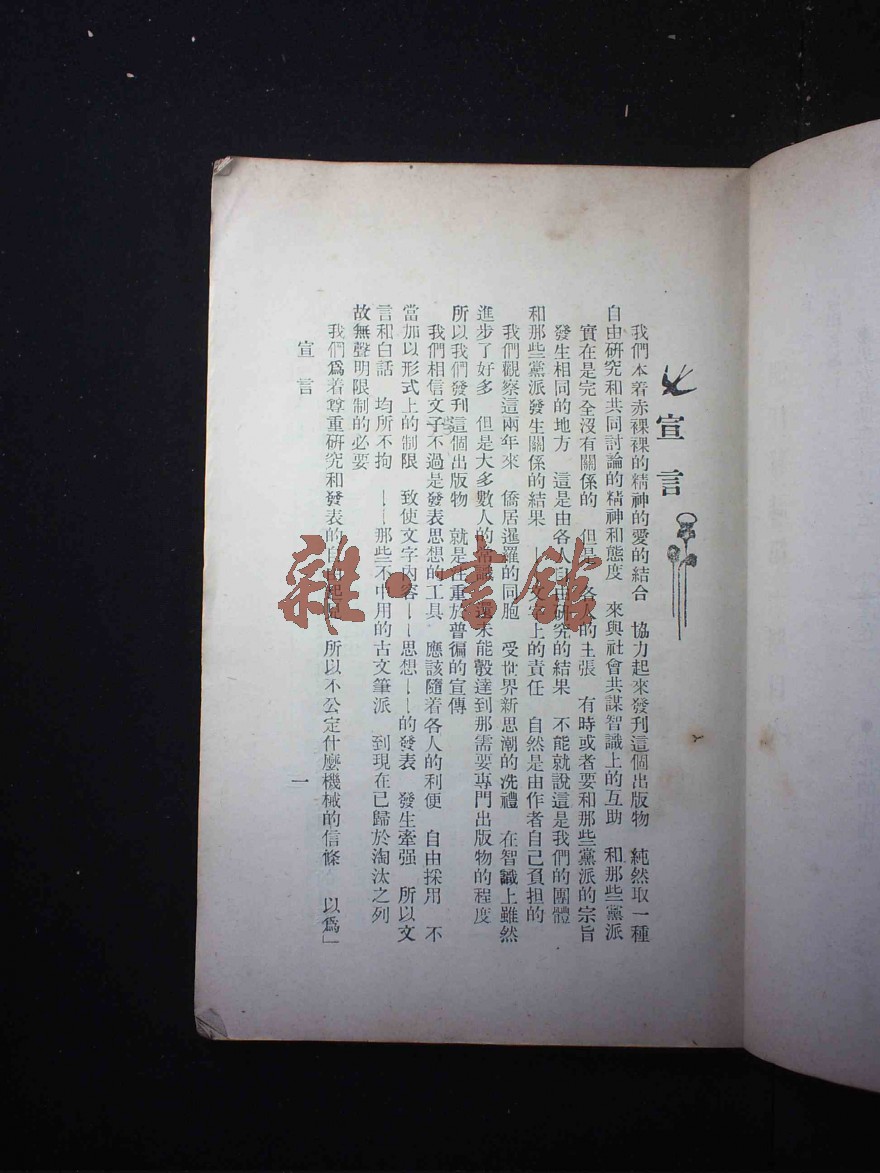 宣言
我們本着赤裸裸的精神的愛的結合 協力起來發刊這個出版物 純然取一種
自由研究和共同討論的精神和態度 來與社會共謀智識上的互助 和那些黨派
實在是完全沒有關係的 但是 各人的主張 有時或者要和那些黨派的宗旨
發生相同的地方 這是由各人自由研究的結果 不能就說這是我們的團體
和那些黨派發生關係的結果 文字上的責任 自然是由作者自己負担的
我們觀察這兩年來 僑居暹羅的同胞 受世界新思潮的洗禮 在智識上雖然
進步了好多 但是大多數人的常識 還未能彀達到那需要專門出版物的程度
所以我們發刊這個出版物 就是注重於普徧的宣傳
我們相信文字不過是發表思想的工具 應該隨着各人的利便 自由採用 不
當加以形式上的制限 致使文字內容——思想——的發表 發生牽强 所以文
言和白話 均所不拘 ——那些不中用的古文筆派 到現在已歸於淘汰之列
故無聲明限制的必要
我們爲着尊重研究和發表的自由起見 所以不公定什麼機械的信條 以爲」
宣言
一
雜·書館